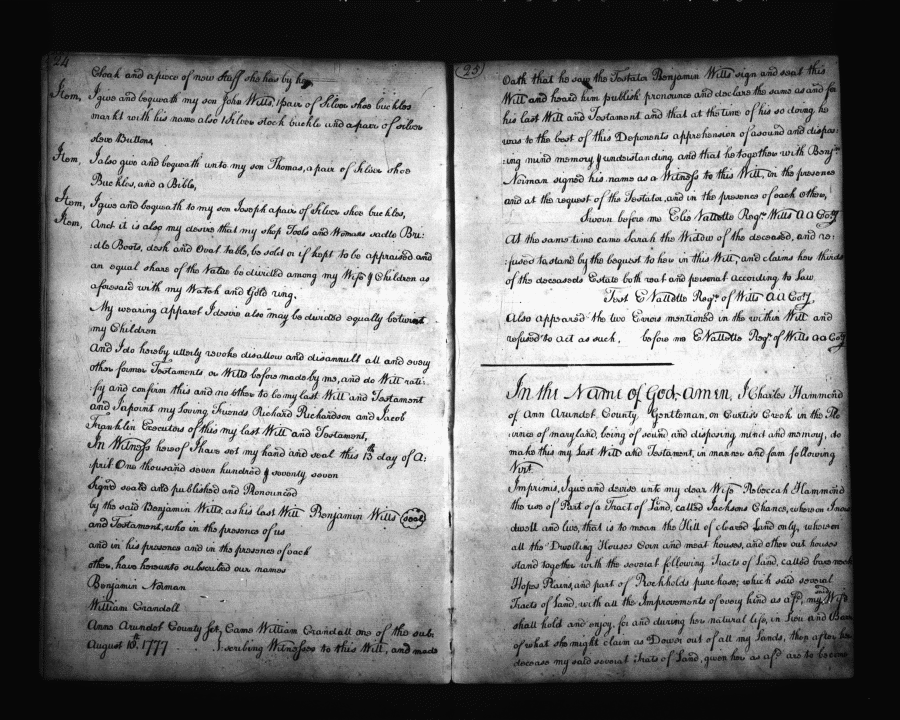 24
Cloak and a piece of new stuff she has by her
Item, I give and bequeath my son John Wells, 1 pair of Silver shoe buckles
markt with his name also 1 Silver stock buckle and a pair of silver
sleve Buttons
Item, I also give and bequeath unto my son Thomas, a pair of Silver shoe
Buckles, and a Bible,
Item, I give and bequeath to my son Joseph a pair of Silver shoe buckles,
Item, And it is also my desire that my shop Tools and Womans sadle Bri:
:dle Boots, desk and Oval table, be sold or if kept to be appraised and
an equal share of the Value be divided among my Wife & Children as
aforesaid with my Watch and Gold ring.
My wearing apparel I desire also may be divided equally betwixt
my Children
And I do hereby utterly revoke disallow and disannull all and every
other former Testaments or Wills before made by me, and do Will rati:
:fy and confirm this and no other to be my last Will and Testament
and I apoint my loving Friends Richard Richardson and Jacob
Franklin Executors of this my last Will and Testament,
In Witness hereof I have set my hand and seal this 13th day of A:
:pril One thousand seven hundred & seventy seven
Signd seald and published and Pronounced
by the said Benjamin Wells, as his last Will Benjamin Wells (seal)
and Testament, who in the presence of us
and in his presence and in the presence of each
other, have hereunto subscribed our names
Benjamin Norman
William Crandell
Anne Arundel County sct, Came William Crandall one of the sub:
August 18th 1777 :scribing Witnesses to this Will, and made
25
Oath that he saw the Testator Benjamin Wells sign and seal this
Will and heard him publish pronounce and declare the same as and for
his last Will and Testament and that at the time of his so doing he
was to the best of this Deponents apprehension of a sound and dispos:
:ing mind memory, & understanding, and that he together with Benjn
Norman signed his name as a Witness to this Will, in the presence
and at the request of the Testator, and in the presence of each other,
Sworn before me Elie Vallette Regr Wills AA Coty
At the same time came Sarah the Widow of the deceased, and re:
:fused to stand by the bequest to her in this Will, and claims her thirds
of the deceaseds Estate both real and personal according to Law
Test E Vallette Regr of Wills AA Coty,
Also appeared the two Exors mentioned in the within Will and
refused to act as such, before me E Vallette Regr of Wills AA Coty
In the Name of God Amen, I Charles Hammond
of Ann Arundel County, Gentleman, on Curtiss Creek in the Pro
:vince of maryland, being of sound and disposing mind and memory, do
make this my last Will and Testament, in manner and form following
Vizt
Imprimis, I give and devise unto my dear Wife Rebeccah Hammond
the use of Part of a Tract of Land, called Jacksons Chance, whereon I now
dwell and live, that is to mean the Hill of cleared Land only, whereon
all the Dwelling Houses Corn and meat houses, and other out houses
stand together with the several following Tracts of Land, called
Hopes Plains, and part of Rockholds purchase; which said several
Tracts of Land, with all the Improvements of every kind as afsd, my said Wife
shall hold and enjoy, for and during her natural life, in Lieu and Barr
of what she might claim as Dower out of all my Lands, then after her
decease my said several Tracts of Land, given her as afsd are to become